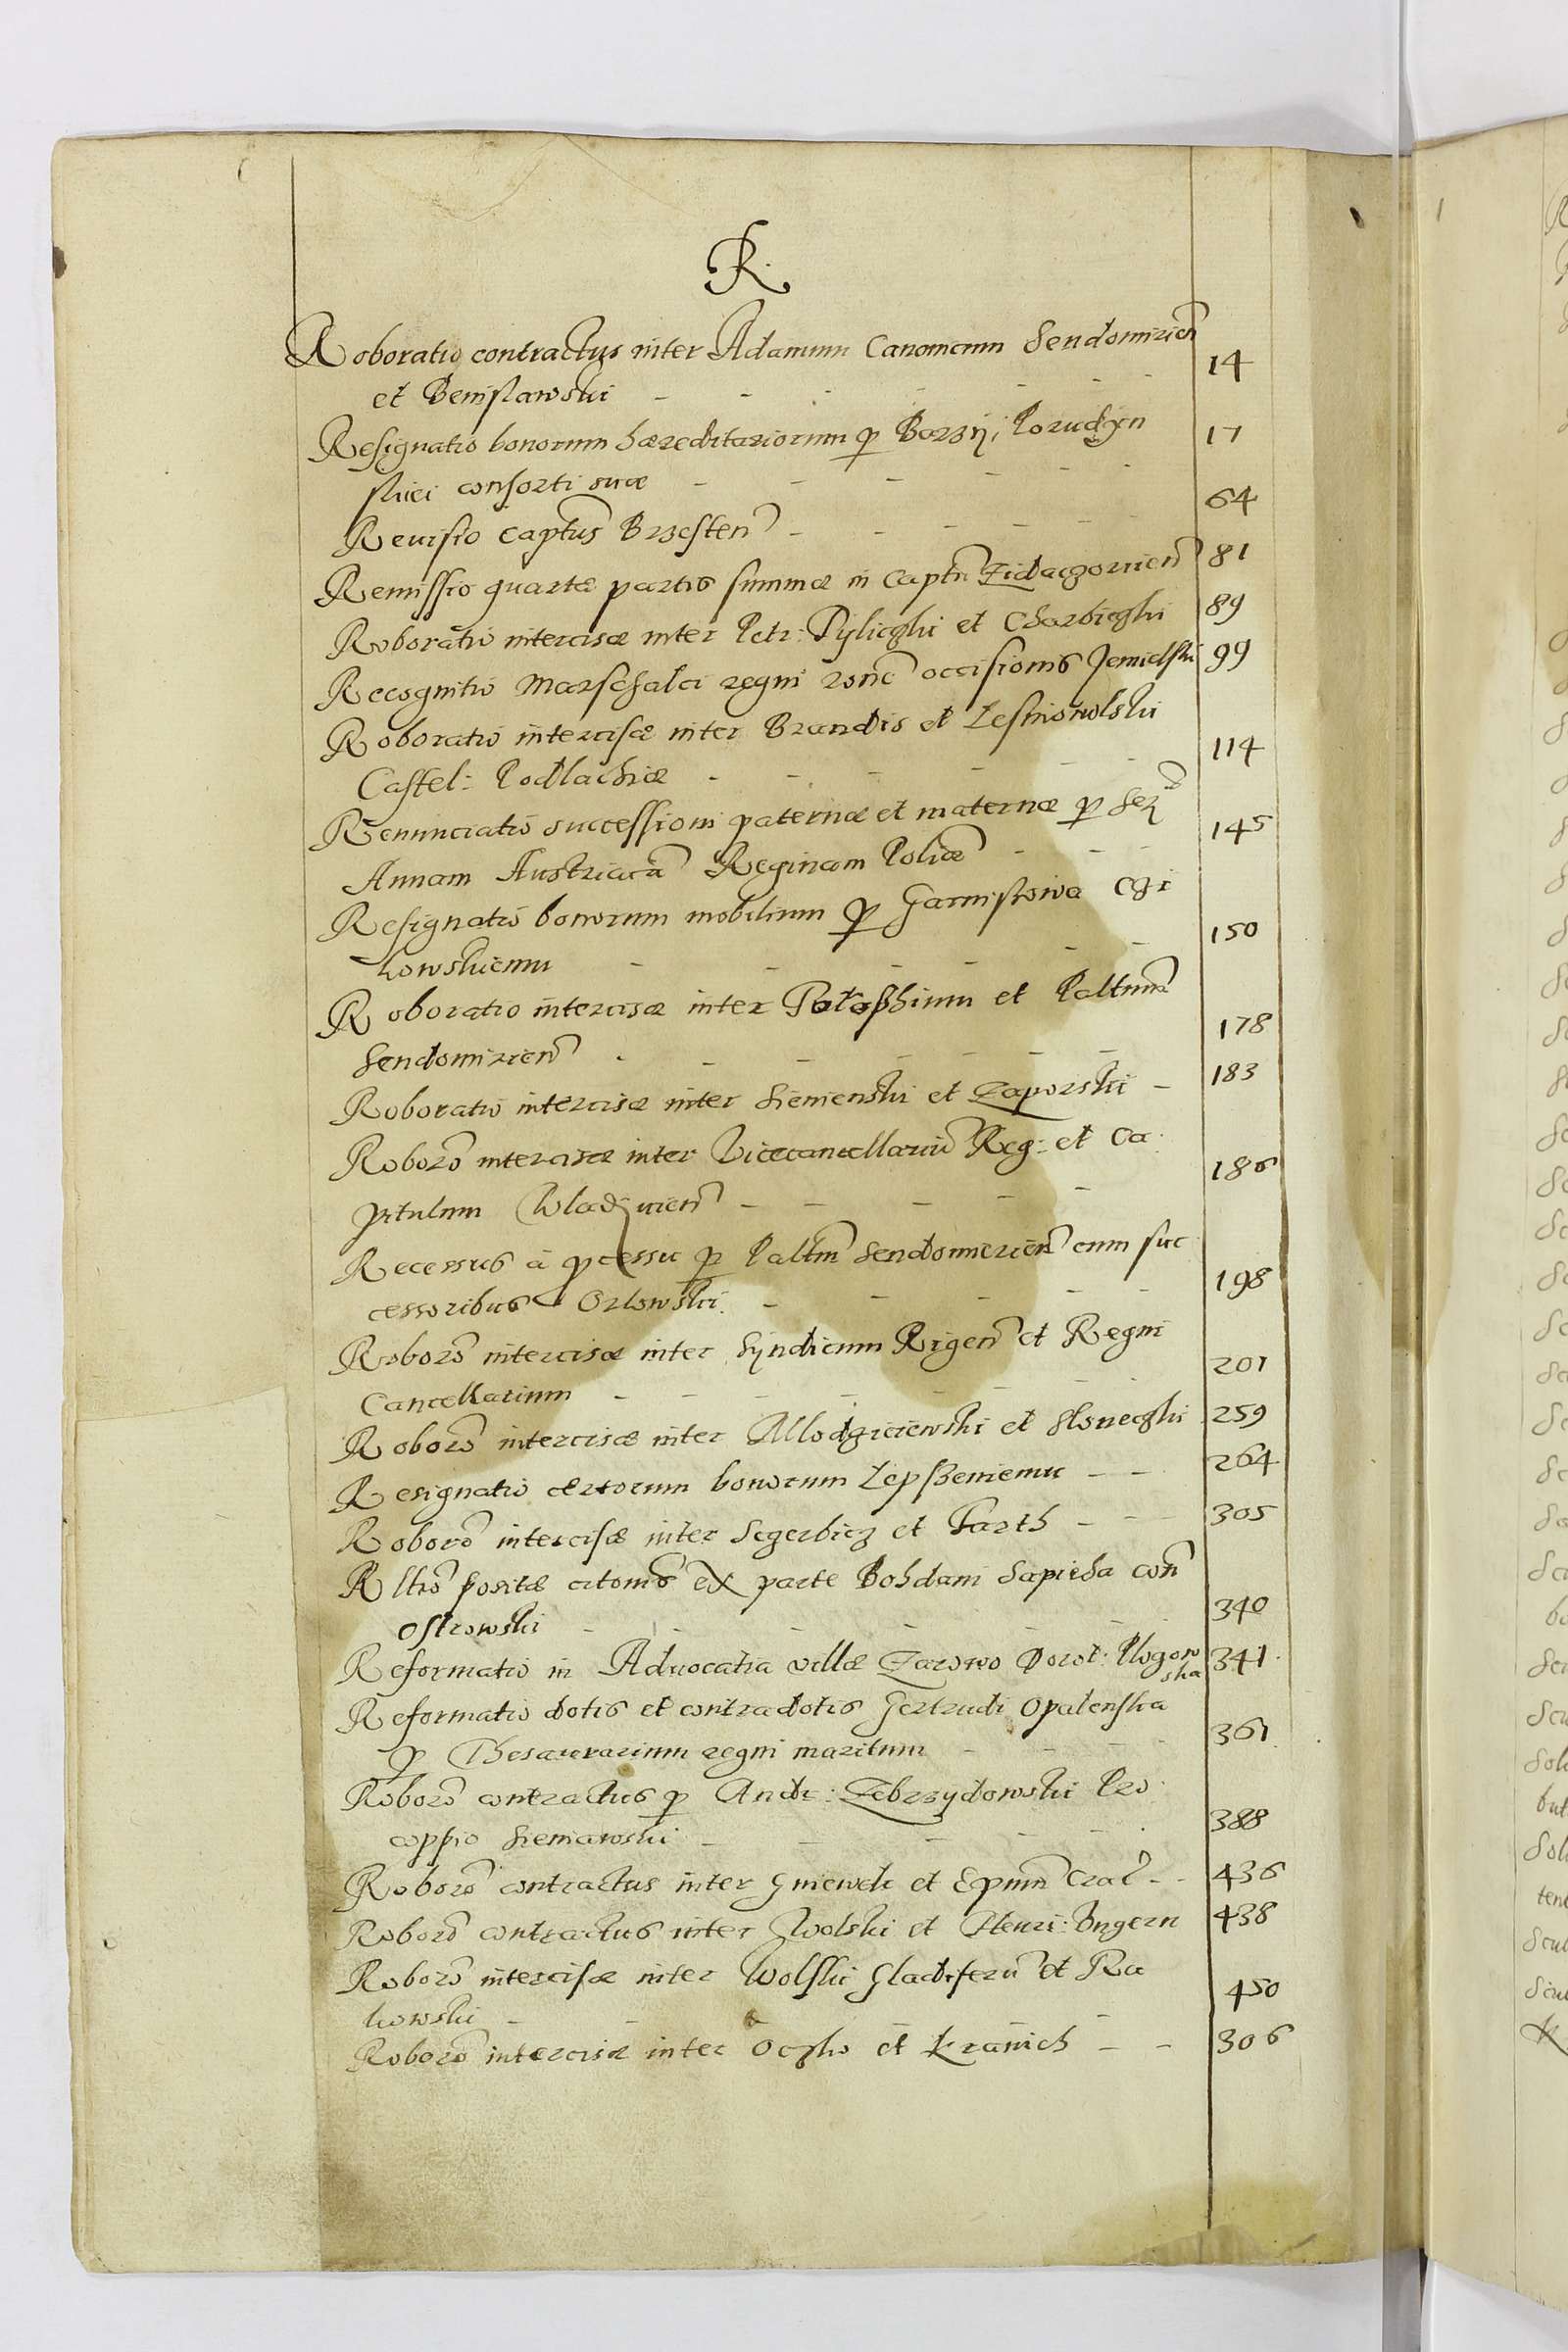 R.
Roboratio contractus inter Adamum Canonicum Sendomirien
et Benislawski - - - - - - 14
Resignatio bonorum hæreditariorum p Barzy; Porudyn
skiei consorti suæ - - - - - 17
Revisio Capitus Brzesten - - - - - 64
Remissio quartæ partis summæ in Captu Zidaczovien 81
Roboratio intercisæ inter Petr: Pylieczki et Charbiczki 89
Recognitio Marschalci regni rone occisionis Jemielski 99
Roboratio intercisæ inter Brandis et Lesniowolski
Castel: Podlachiæ - - - - - - 114
Renunciatio successioni paternæ et maternæ p Ser
Annam Austriacã Reginam Poliæ - - - 145
Resignatio bonorum mobilium p Harnistowa Czi
kowskiemu - - - - - - 150
Roboratio intercisæ inter Patoskinum et Paltinum
Sendomirien - - - - - - - 178
Roboratio intercisæ inter Sienienski et Zaporski - 183
Roboro intercisæ inter Vicecancellariũ Reg: et Ca
pitulum Wladivien - - - - - 186
Recessus à pcessu p Paltm Sendomirien cum suc
cessoribus Orlowski. - - - - - 198
Roboro intercisæ inter Syndicum Rigen et Regni
Cancellarium - - - - - - - 201
Roboro intercisæ inter Mlodzieiewski et Sloneczki 259
Resignatio certorum bonorum Lepszeniemu - - 264
Roboro intercisæ inter Segerbicz et Farth - - - 305
Rltio positæ citonis ex parte Bohdani Sapieha con
Ostrowski - - - - - - - 340
Reformatio in Aduocatia villæ Zarowo Dorot: Glogow
ska 341
Reformatio dotis et contradotis Gertrudi Opalenska
p Thesaurarium regni maritum - - - 361
Roboro contractus p Andr: Zebrzydowski Pro
coppio Sieniawski - - - - - - 388
Roboro contractus inter Gniewek et Epium Crac - - 436
Roboro contractus inter Gwolski et Henri: Ungern 438
Roboro intercisæ inter Wolski Gladiferũ et Ra
kowski - - - - - - 450
Roboro intercisæ inter Oczko et Kranich - - 306